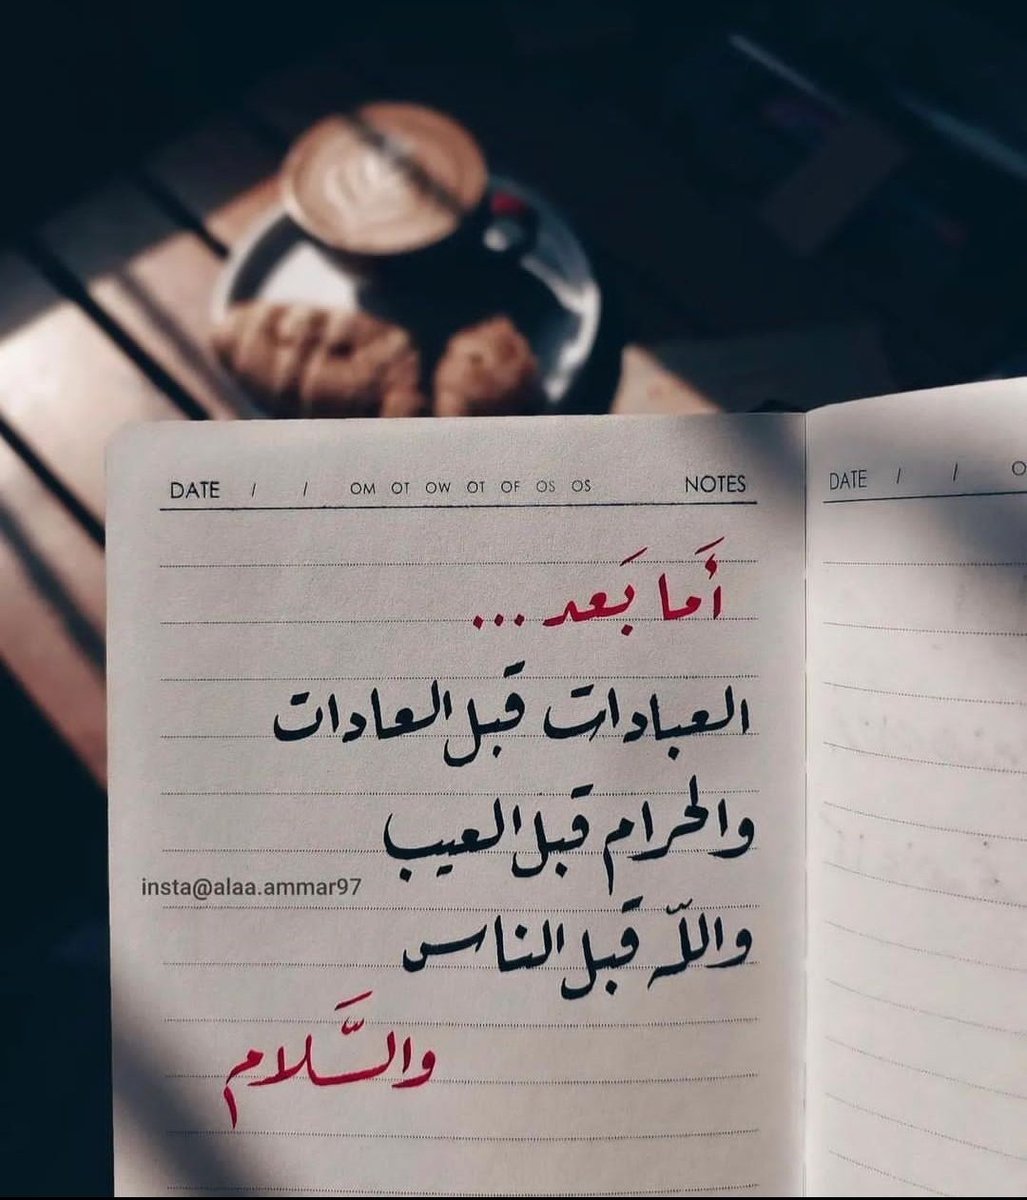 DATE / / OM OT OW OT OF OS OS NOTES
DATE / / O
أَما بَعد ...
العبادات قبل العادات
والحرام قبل العيب
insta@alaa.ammar97
والله قبل الناس
والسَّلام